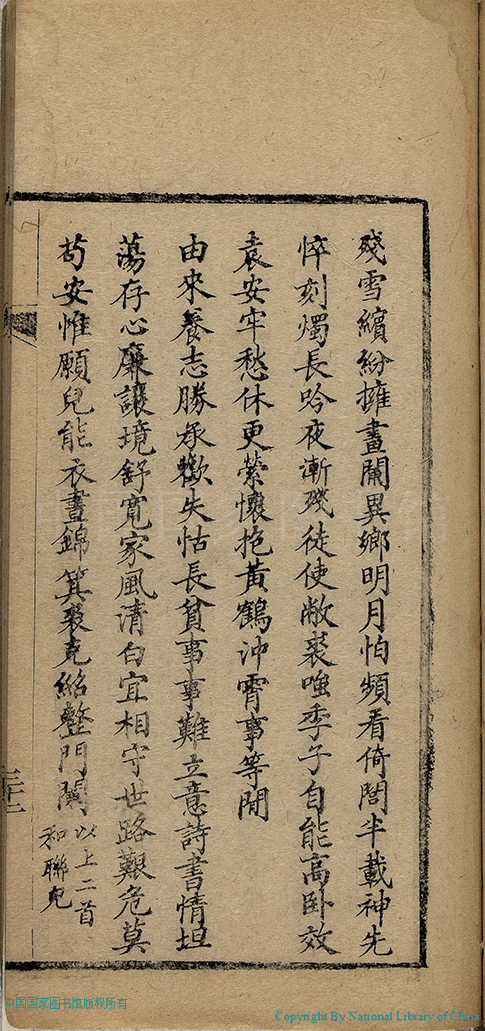 殘雪繽紛擁畫闌異鄉明月怕頻看倚閭半載神先
悴刻燭長吟夜漸殘徒使敝裘嗤季子自能高卧效
袁安牢愁休更縈懷抱黃鶴沖霄事等閒
由來養志勝承歡失怙長貧事事難立意詩書情坦
蕩存心廉讓境舒寬家風清白宜相守世路艱危莫
苟安惟願兒能衣晝錦箕裘克紹整門闌
以上二首
和聯兒
三十二
中国国家图书馆版权所有
Copyright By National Library of China